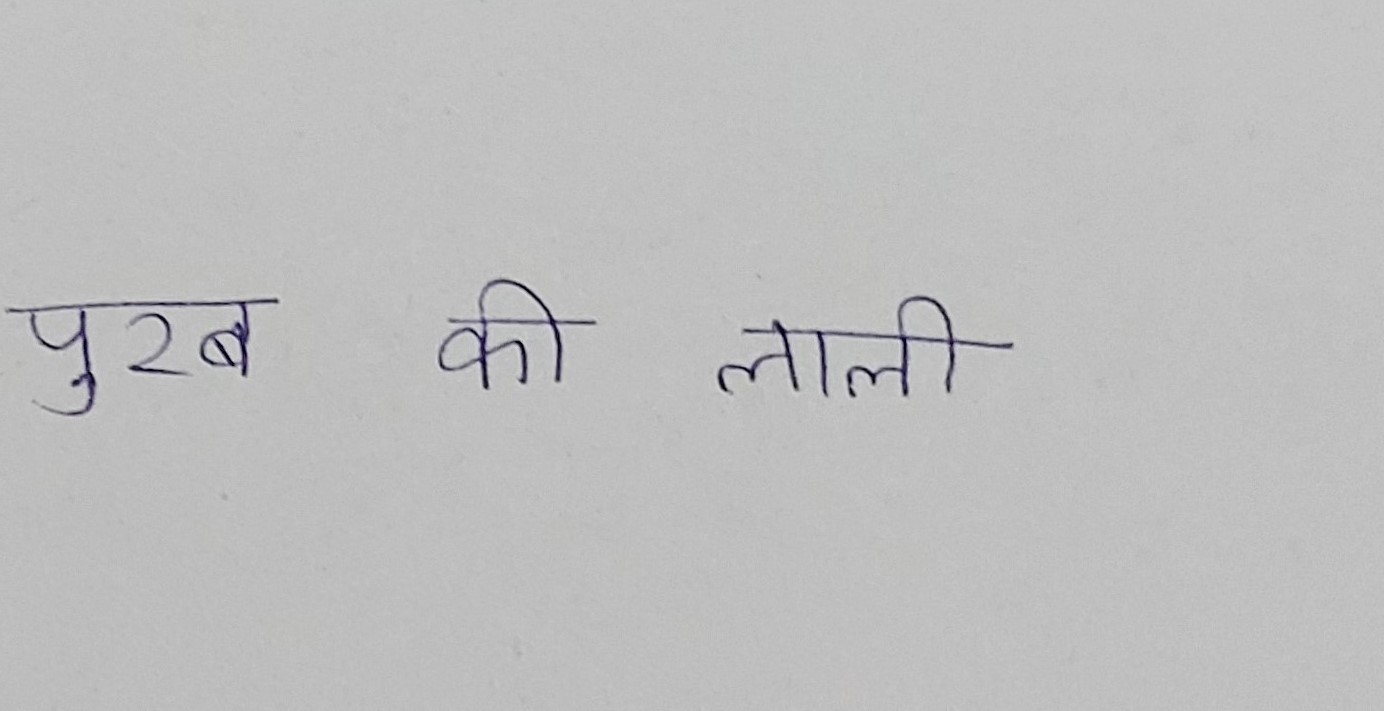 पुरब की लाली